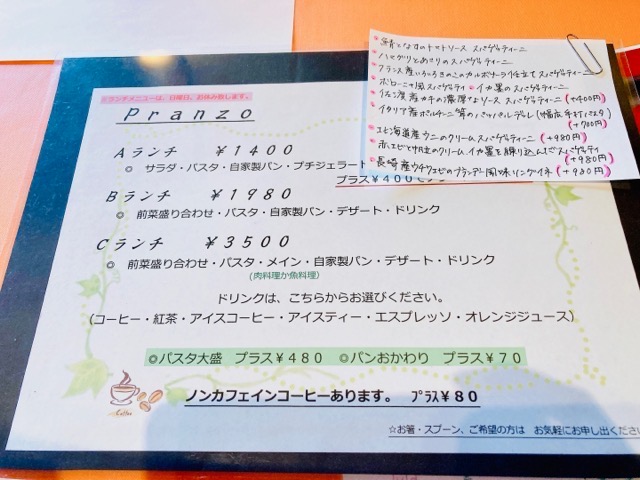 ・鯖となすのトマトソース スパゲッティーニ
・ハマグリとあさりのスパゲッティーニ
・フランス産いろいろきのこのカルボナーラ仕立て スパゲッティーニ
ボローニャ風 スパゲッティ ・イカ墨のスパゲッティーニ
・佐渡産カキの濃厚なソース スパゲッティーニ (+400円)
・イタリア産ポルチーニ茸のパッパルデレ (幅広手打パスタ)
(+700円)
・北海道産ウニのクリームスパゲッティーニ (+980円)
・赤エビと帆立のクリーム イカ墨を練り込んだスパゲッティ
(+980円)
・長崎産ウチワエビのブランデー風味リングイネ (+980円)
※ランチメニューは、日曜日、お休み致します。
Pranzo
Aランチ ￥1400
◎ サラダ・パスタ・自家製パン・プチジェラート
プラス￥400で
Bランチ ￥1980
◎ 前菜盛り合わせ・パスタ・自家製パン・デザート・ドリンク
Cランチ ￥3500
◎ 前菜盛り合わせ・パスタ・メイン・自家製パン・デザート・ドリンク
(肉料理か魚料理)
ドリンクは、こちらからお選びください。
(コーヒー・紅茶・アイスコーヒー・アイスティー・エスプレッソ・オレンジジュース)
◎パスタ大盛 プラス￥480 ◎パンおかわり プラス￥70
Coffee
ノンカフェインコーヒーあります。 ﾌﾟﾗｽ￥80
☆お箸・スプーン、ご希望の方は お気軽にお申し出くださ